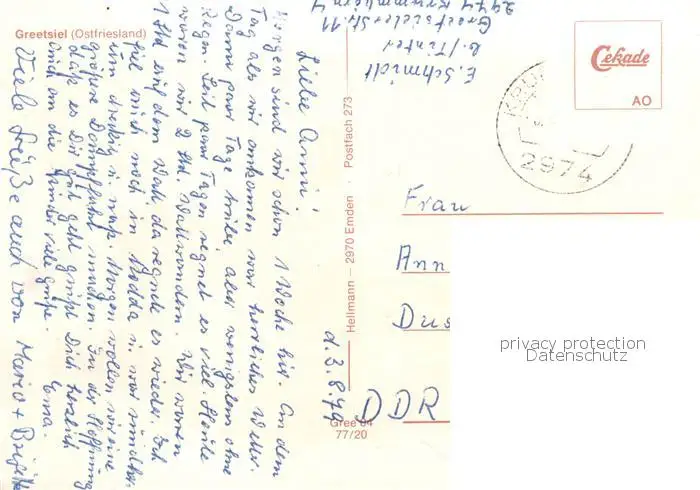 Greetsiel (Ostfriesland)
Liebe Anni!
Morgen sind wir schon 1 Woche hier. An dem
Tag als wir ankamen war herrliches Wetter.
Dann paar Tage trübe aber wenigstens ohne
Regen. Seit paar Tagen regnet es viel. Heute
waren wir 2 Std. Wattwandern. Wir waren
1 Std auf dem Watt, da regnete es wieder. Ich
fiel auch noch in Modda u. war
um dreckig u. naß. Morgen wollen wir eine
große Dampffahrt machen. In der Hoffnung
daß es Dir gut geht grüßt Dich herzlich
auch an die Kinder viele Grüße. Erna.
Viele Grüße auch von Mario +
E. Schmidt
Greetsieler Str. 11
2974 Krummhörn 4
d. 3.8.79
Hellmann — 2970 Emden · Postfach 273
Gree 04
77/20
Cekade
AO
2974
Frau
Ann
Dus
DDR
privacy protection
Datenschutz